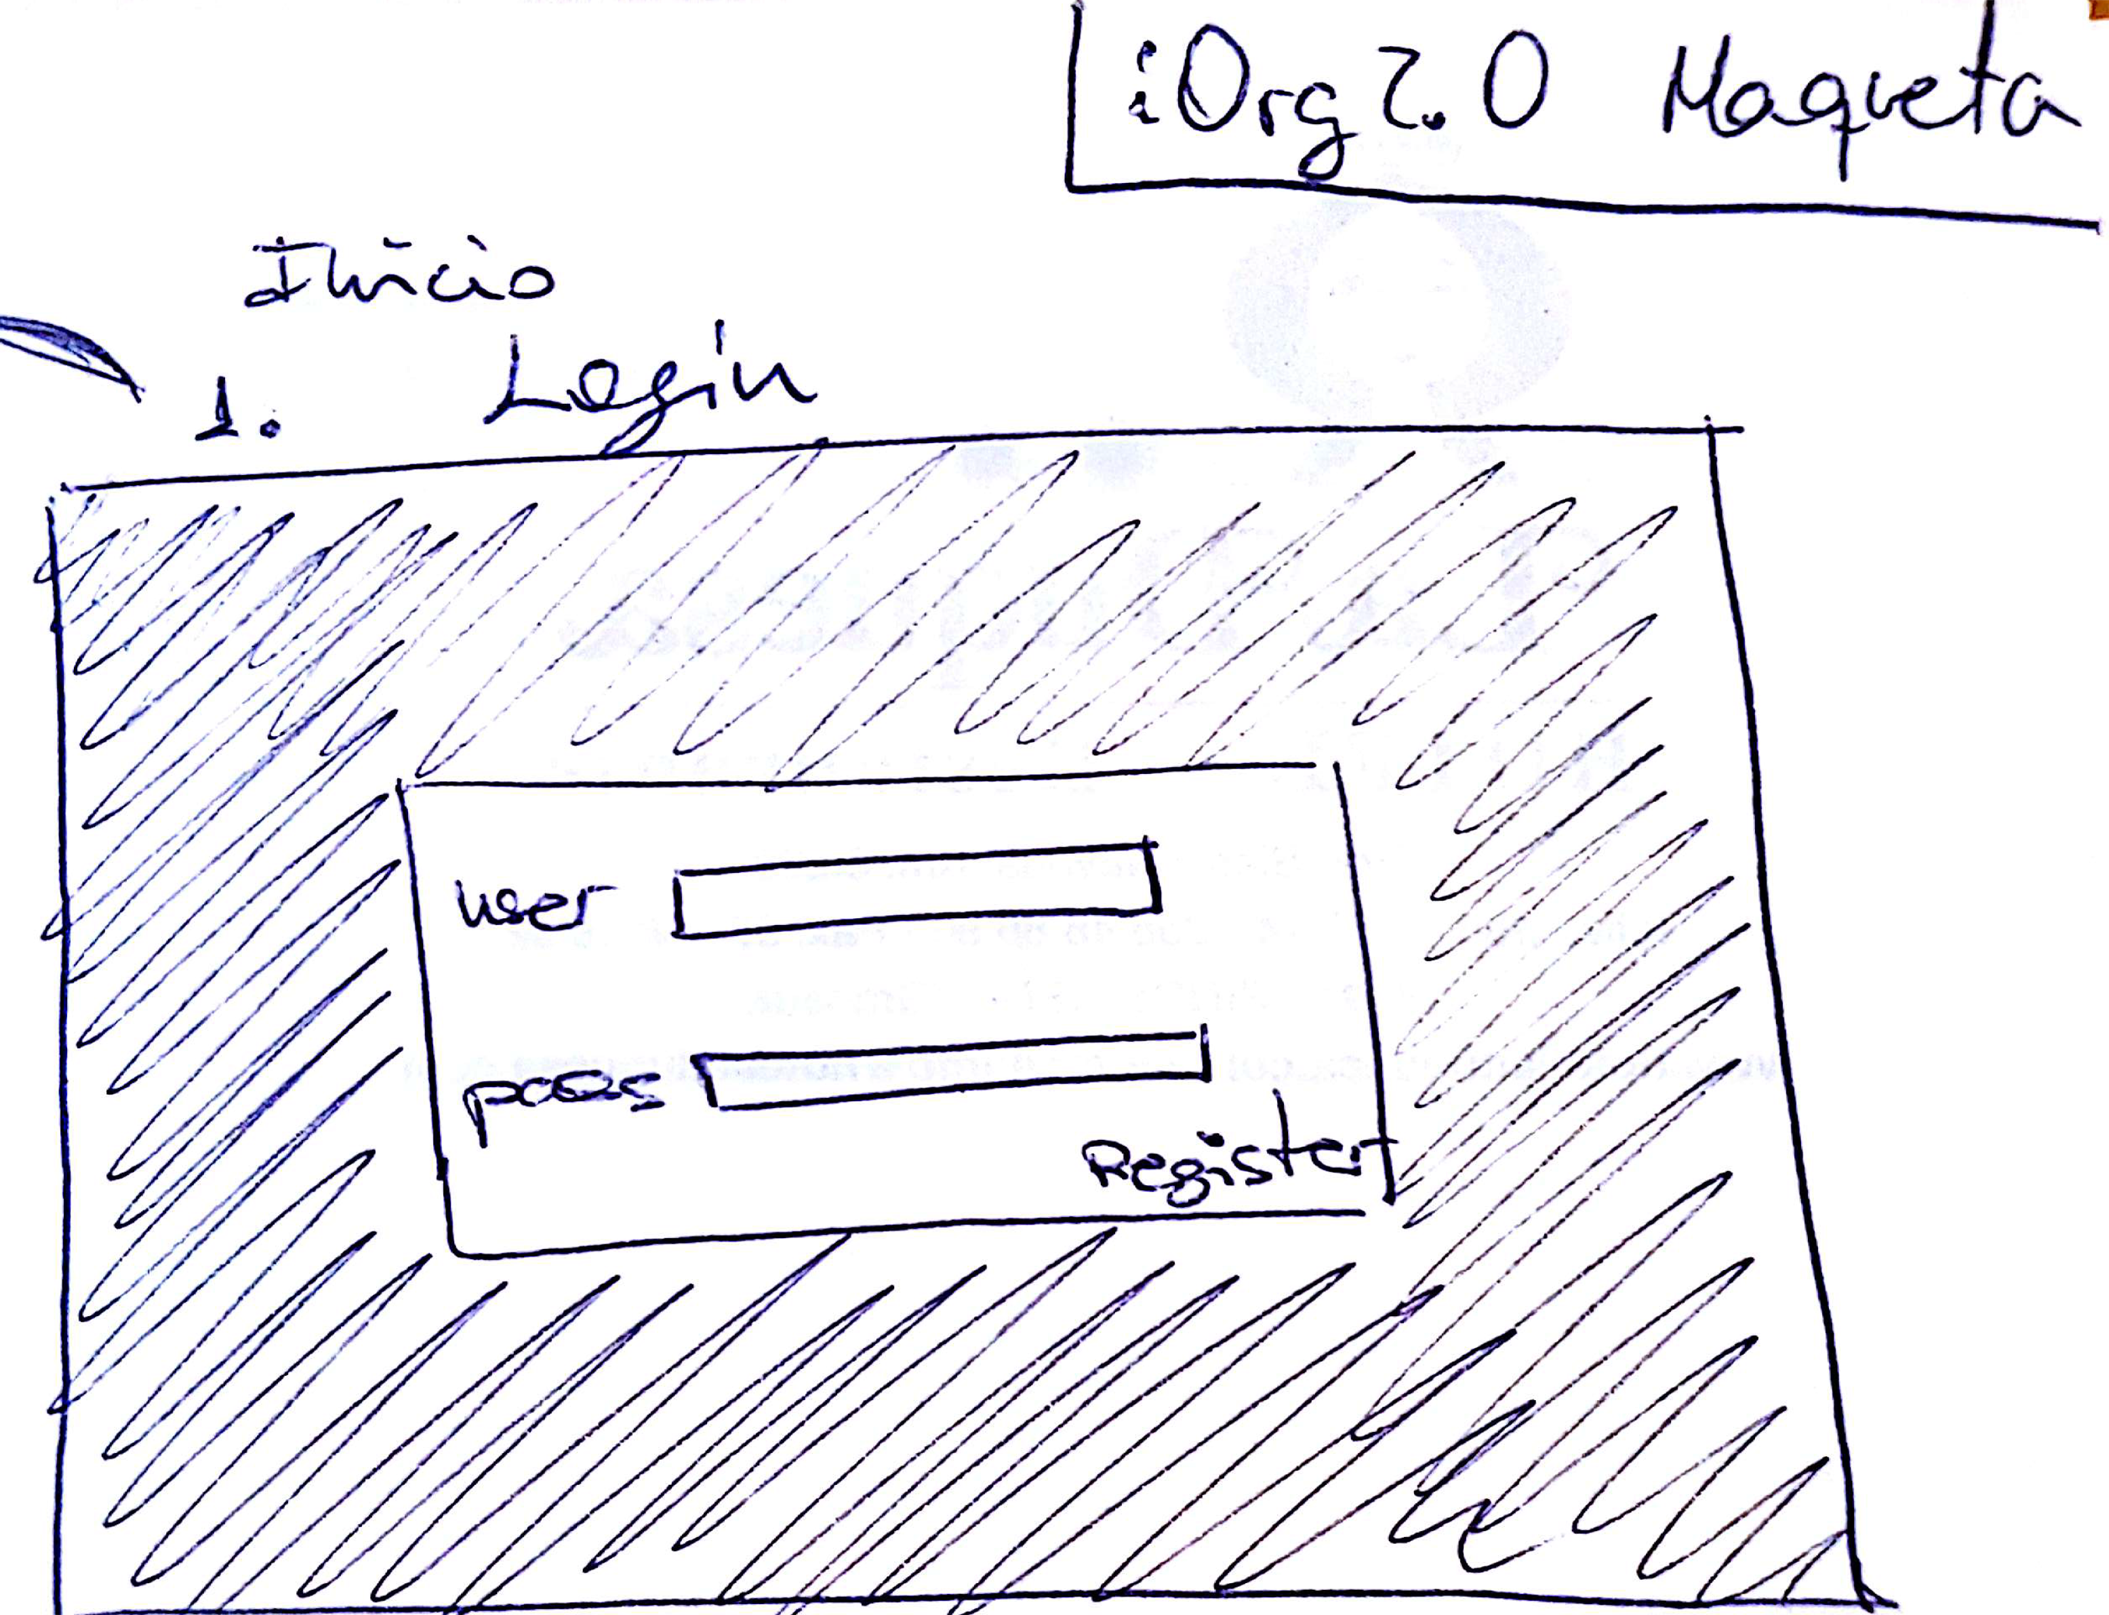 iOrg 2.0 Maqueta
Inicio
1. Login
user
pass
Register